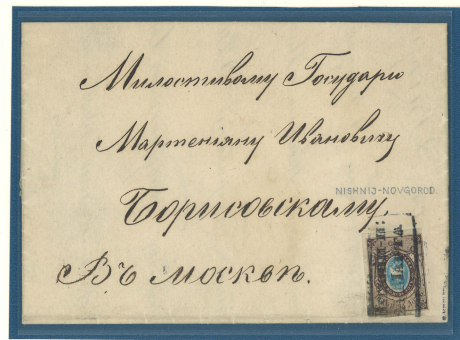 Милостивому Государю
Мартеніяну Ивановичу
NISHNIJ-NOVGOROD
Борисовскому
Въ Москвѣ.